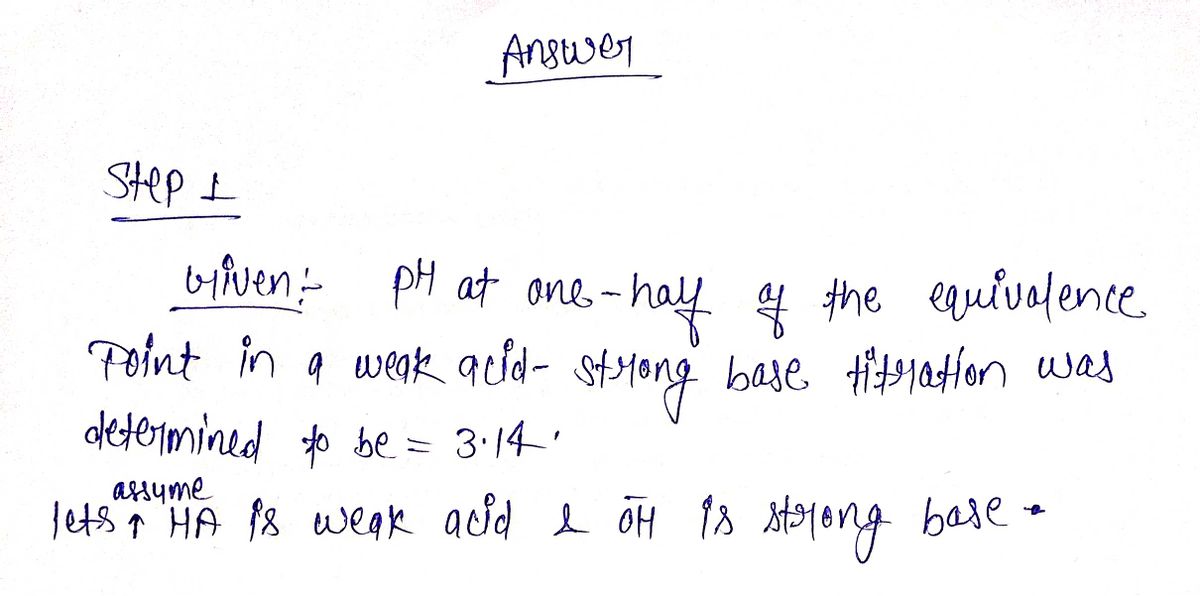 Answer
Step 1
Given:- pH at one-half of the equivalence
Point in a weak acid- strong base titration was
determined to be = 3.14'
assume
lets ↑ HA is weak acid & ŌH is strong base -